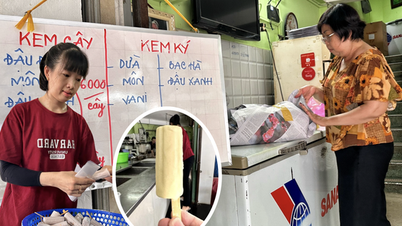 KEM CÂY
ĐẬU
MÔN
ĐẬU
6000
cây
KEM KÝ
DỪA
MÔN
VANI
BẠC HÀ
ĐẬU XANH
HARVARD
SANA